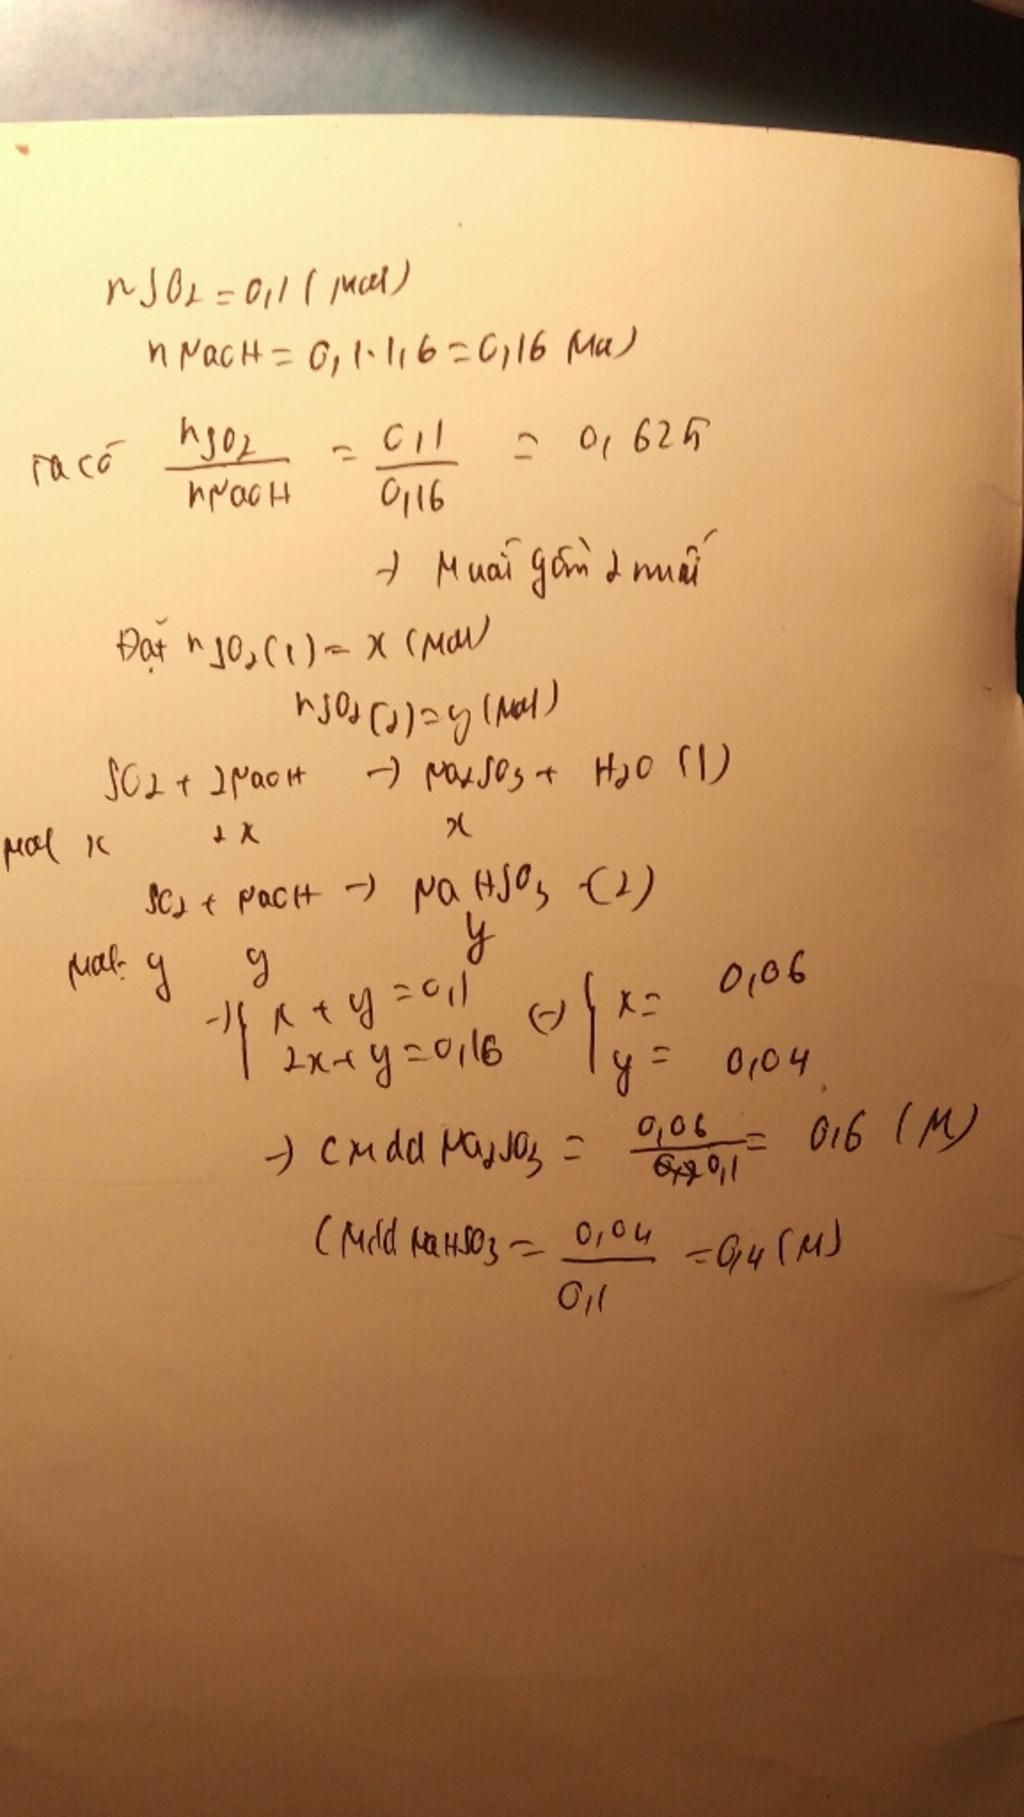 nSO2 = 0,1 (mol)
nNaOH = 0,1.1,6 = 0,16 mol)
Ta có nSO2/nNaOH = 0,1/0,16 = 0,625
→ Muối gồm 2 muối
Đặt nSO2(1) = x (mol)
nSO2(2) = y (mol)
SO2 + 2NaOH → Na2SO3 + H2O (1)
mol x 2x x
SO2 + NaOH → NaHSO3 (2)
mol: y y y
→ { x + y = 0,1 (-) { x = 0,06
2x + y = 0,16 y = 0,04
→ CMdd Na2SO3 = 0,06/0,1 = 0,6 (M)
CMdd NaHSO3 = 0,04/0,1 = 0,4 (M)